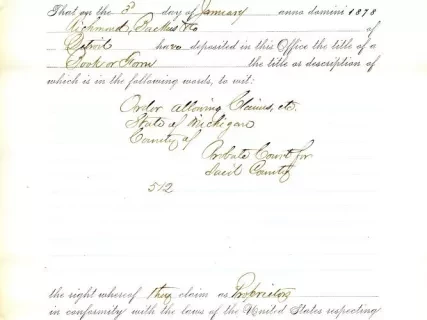 That on the 3d day of January anno domini 1878
Richmond, Backus & Co of
Detroit have deposited in this Office the title of a
Book or Form the title or description of
which is in the following words, to wit:
Order allowing Claims, etc.
State of Michigan
County of
Probate Court for
Said County
512
the right whereof they claim as Proprietors
in conformity with the laws of the United States respecting